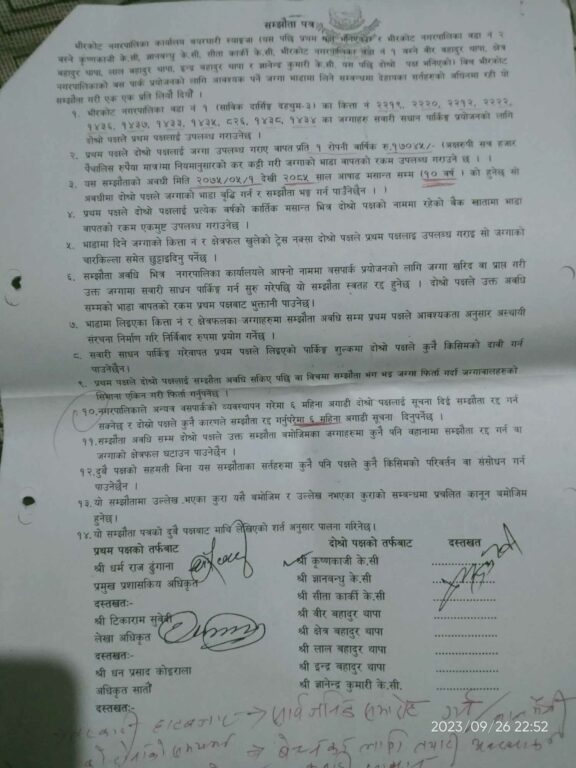 सम्झौता पत्र
भीरकोट नगरपालिका कार्यालय बयरघारी स्याङ्जा (यस पछि प्रथम पक्ष भनिएको) र भीरकोट नगरपालिका वडा नं २
बस्ने कृष्णकाजी के.सी, ज्ञानबन्धु के.सी, सीता कार्की के.सी, भीरकोट नगरपालिका वडा नं १ बस्ने वीर बहादुर थापा, क्षेत्र
बहादुर थापा, लाल बहादुर थापा, इन्द्र बहादुर थापा र ज्ञानेन्द्र कुमारी के.सी. यस पछि दोश्रो पक्ष भनिएको) बिच भीरकोट
नगरपालिकाको बस पार्क प्रयोजनको लागि आवश्यक पर्ने जग्गा भाडामा लिने सम्बन्धमा देहायका सर्तहरुको अधिनमा रही यो
सम्झौता गरी एक एक प्रति लियौं दियौं ।
१. भीरकोट नगरपालिका वडा नं १ (साविक दार्सिङ्ग दहथुम-३) का कित्ता नं २२१९, २२२०, २२१२, २२२२,
१४३६, १४३७, १४३३, १४३५, ८२६, १४३८, १४३४ का जग्गाहरु सवारी साधन पार्किङ्ग प्रयोजनको लागि
दोश्रो पक्षले प्रथम पक्षलाई उपलब्ध गराउनेछ ।
२. प्रथम पक्षले दोश्रो पक्षलाई जग्गा उपलब्ध गराए वापत प्रति १ रोपनी वार्षिक रु.१७०४५/- (अक्षरुपी सत्र हजार
पैंचालिस रुपैया मात्र)मा नियमानुसारको कर कट्टी गरी जग्गाको भाडा बापतको रकम उपलब्ध गराउने छ । ।
३. यस सम्झौताको अवधी मिति २०७५/०५/१ देखी २०८५ साल आषाढ मसान्त सम्म (१० वर्ष ) को हुनेछ सो
अवधीमा दोश्रो पक्षले जग्गाको भाडा बृद्धि गर्न र सम्झौता भङ्ग गर्न पाउँनेछैन । ।
४. प्रथम पक्षले दोश्रो पक्षलाई प्रत्येक वर्षको कार्तिक मसान्त भित्र दोश्रो पक्षको नाममा रहेको बैंक खातामा भाडा
वापतको रकम एकमुष्ट उपलब्ध गराउनेछ ।
५. भाडामा दिने जग्गाको कित्ता नं र क्षेत्रफल खुलेको ट्रेस नक्सा दोश्रो पक्षले प्रथम पक्षलाइ उपलब्ध गराइ सो जग्गाको
चारकिल्ला समेत छुट्टाइदिनु पर्नेछ ।
६. सम्झौता अवधि भित्र नगरपालिका कार्यालयले आफ्नो नाममा बसपार्क प्रयोजनको लागि जग्गा खरिद वा प्राप्त गरी
उक्त जग्गामा सवारी साधन पार्किङ्ग गर्न सुरु गरेपछि यो सम्झौता स्वतह रद्द हुनेछ । दोश्रो पक्षले उक्त अवधि
सम्मको भाडा वापतको रकम प्रथम पक्षबाट भुक्तानी पाउनेछ ।
७. भाडामा लिइएका कित्ता नं र क्षेत्रफलका जग्गाहरुमा सम्झौता अवधि सम्म प्रथम पक्षले आवश्यकता अनुसार अस्थायी
संरचना निर्माण गरि निर्विवाद रुपमा प्रयोग गर्नेछ ।
८. सवारी साधन पार्किङ्ग गरेवापत प्रथम पक्षले लिइएको पार्किङ्ग शुल्कमा दोश्रो पक्षले कुनै किसिमको दावी गर्न
पाउनेछैन।
९. प्रथम पक्षले दोश्रो पक्षलाई सम्झौता अवधि सकिए पछि वा विचमा सम्झौता भंग भइ जग्गा फिर्ता गर्दा जग्गावालहरुको
सिमाना एकिन गरी फिर्ता गर्नुपर्नेछ ।
१०.नगरपालिकाले अन्यत्र बसपार्कको व्यवस्थापन गरेमा ६ महिना अगाडी दोश्रो पक्षलाई सूचना दिई सम्झौता रद्द गर्न
सक्नेछ र दोस्रो पक्षले कुनै कारणले सम्झौता रद्द गर्नुपरेमा ६ महिना अगाडी सूचना दिनुपर्नेछ ।
११.सम्झौता अवधि सम्म दोश्रो पक्षले उक्त सम्झौता बमोजिमका जग्गाहरुमा कुनै पनि वहानामा सम्झौता रद्द गर्न वा
जग्गाको क्षेत्रफल घटाउन पाउनेछैन ।
१२.दुवै पक्षको सहमती बिना यस सम्झौताका सर्तहरुमा कुनै पनि पक्षले कुनै किसिमको परिवर्तन वा संसोधन गर्न
पाउँनेछैन ।
१३.यो सम्झौतामा उल्लेख .भएका कुरा यसै बमोजिम र उल्लेख नभएका कुराको सम्बन्धमा प्रचलित कानून बमोजिम
हुनेछ।
१४.यो सम्झौता पत्रको दुवै पक्षबाट माथि लेखिएको शर्त अनुसार पालना गरिनेछ।
प्रथम पक्षको तर्फबाट दोश्रो पक्षको तर्फबाट दस्तखत
श्री धर्म राज ढुंगाना श्री कृष्णकाजी के.सी
प्रमुख प्रशासकिय अधिकृत श्री ज्ञानबन्धु के.सी
दस्तखतः- श्री सीता कार्की के.सी
श्री टिकाराम सुवेदी श्री वीर बहादुर थापा
लेखा अधिकृत श्री क्षेत्र बहादुर थापा
दस्तखतः- श्री लाल बहादुर थापा
श्री धन प्रसाद कोइराला श्री इन्द्र बहादुर थापा
अधिकृत सातौं श्री ज्ञानेन्द्र कुमारी के.सी.
दस्तखतः-
2023/09/26 22:52